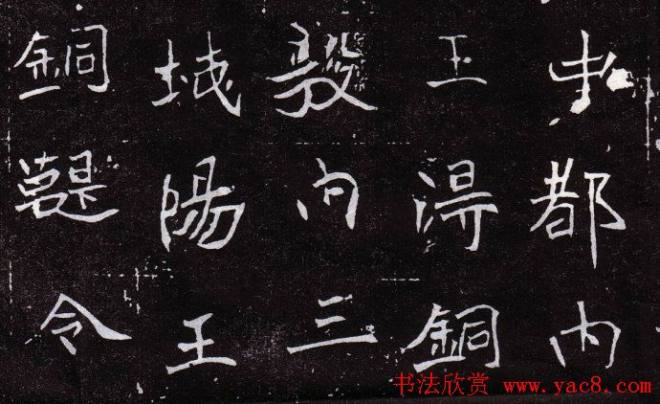 都内
王淂銅
向三
城陽王
銅鞮令
书法欣赏 www.yac8.com